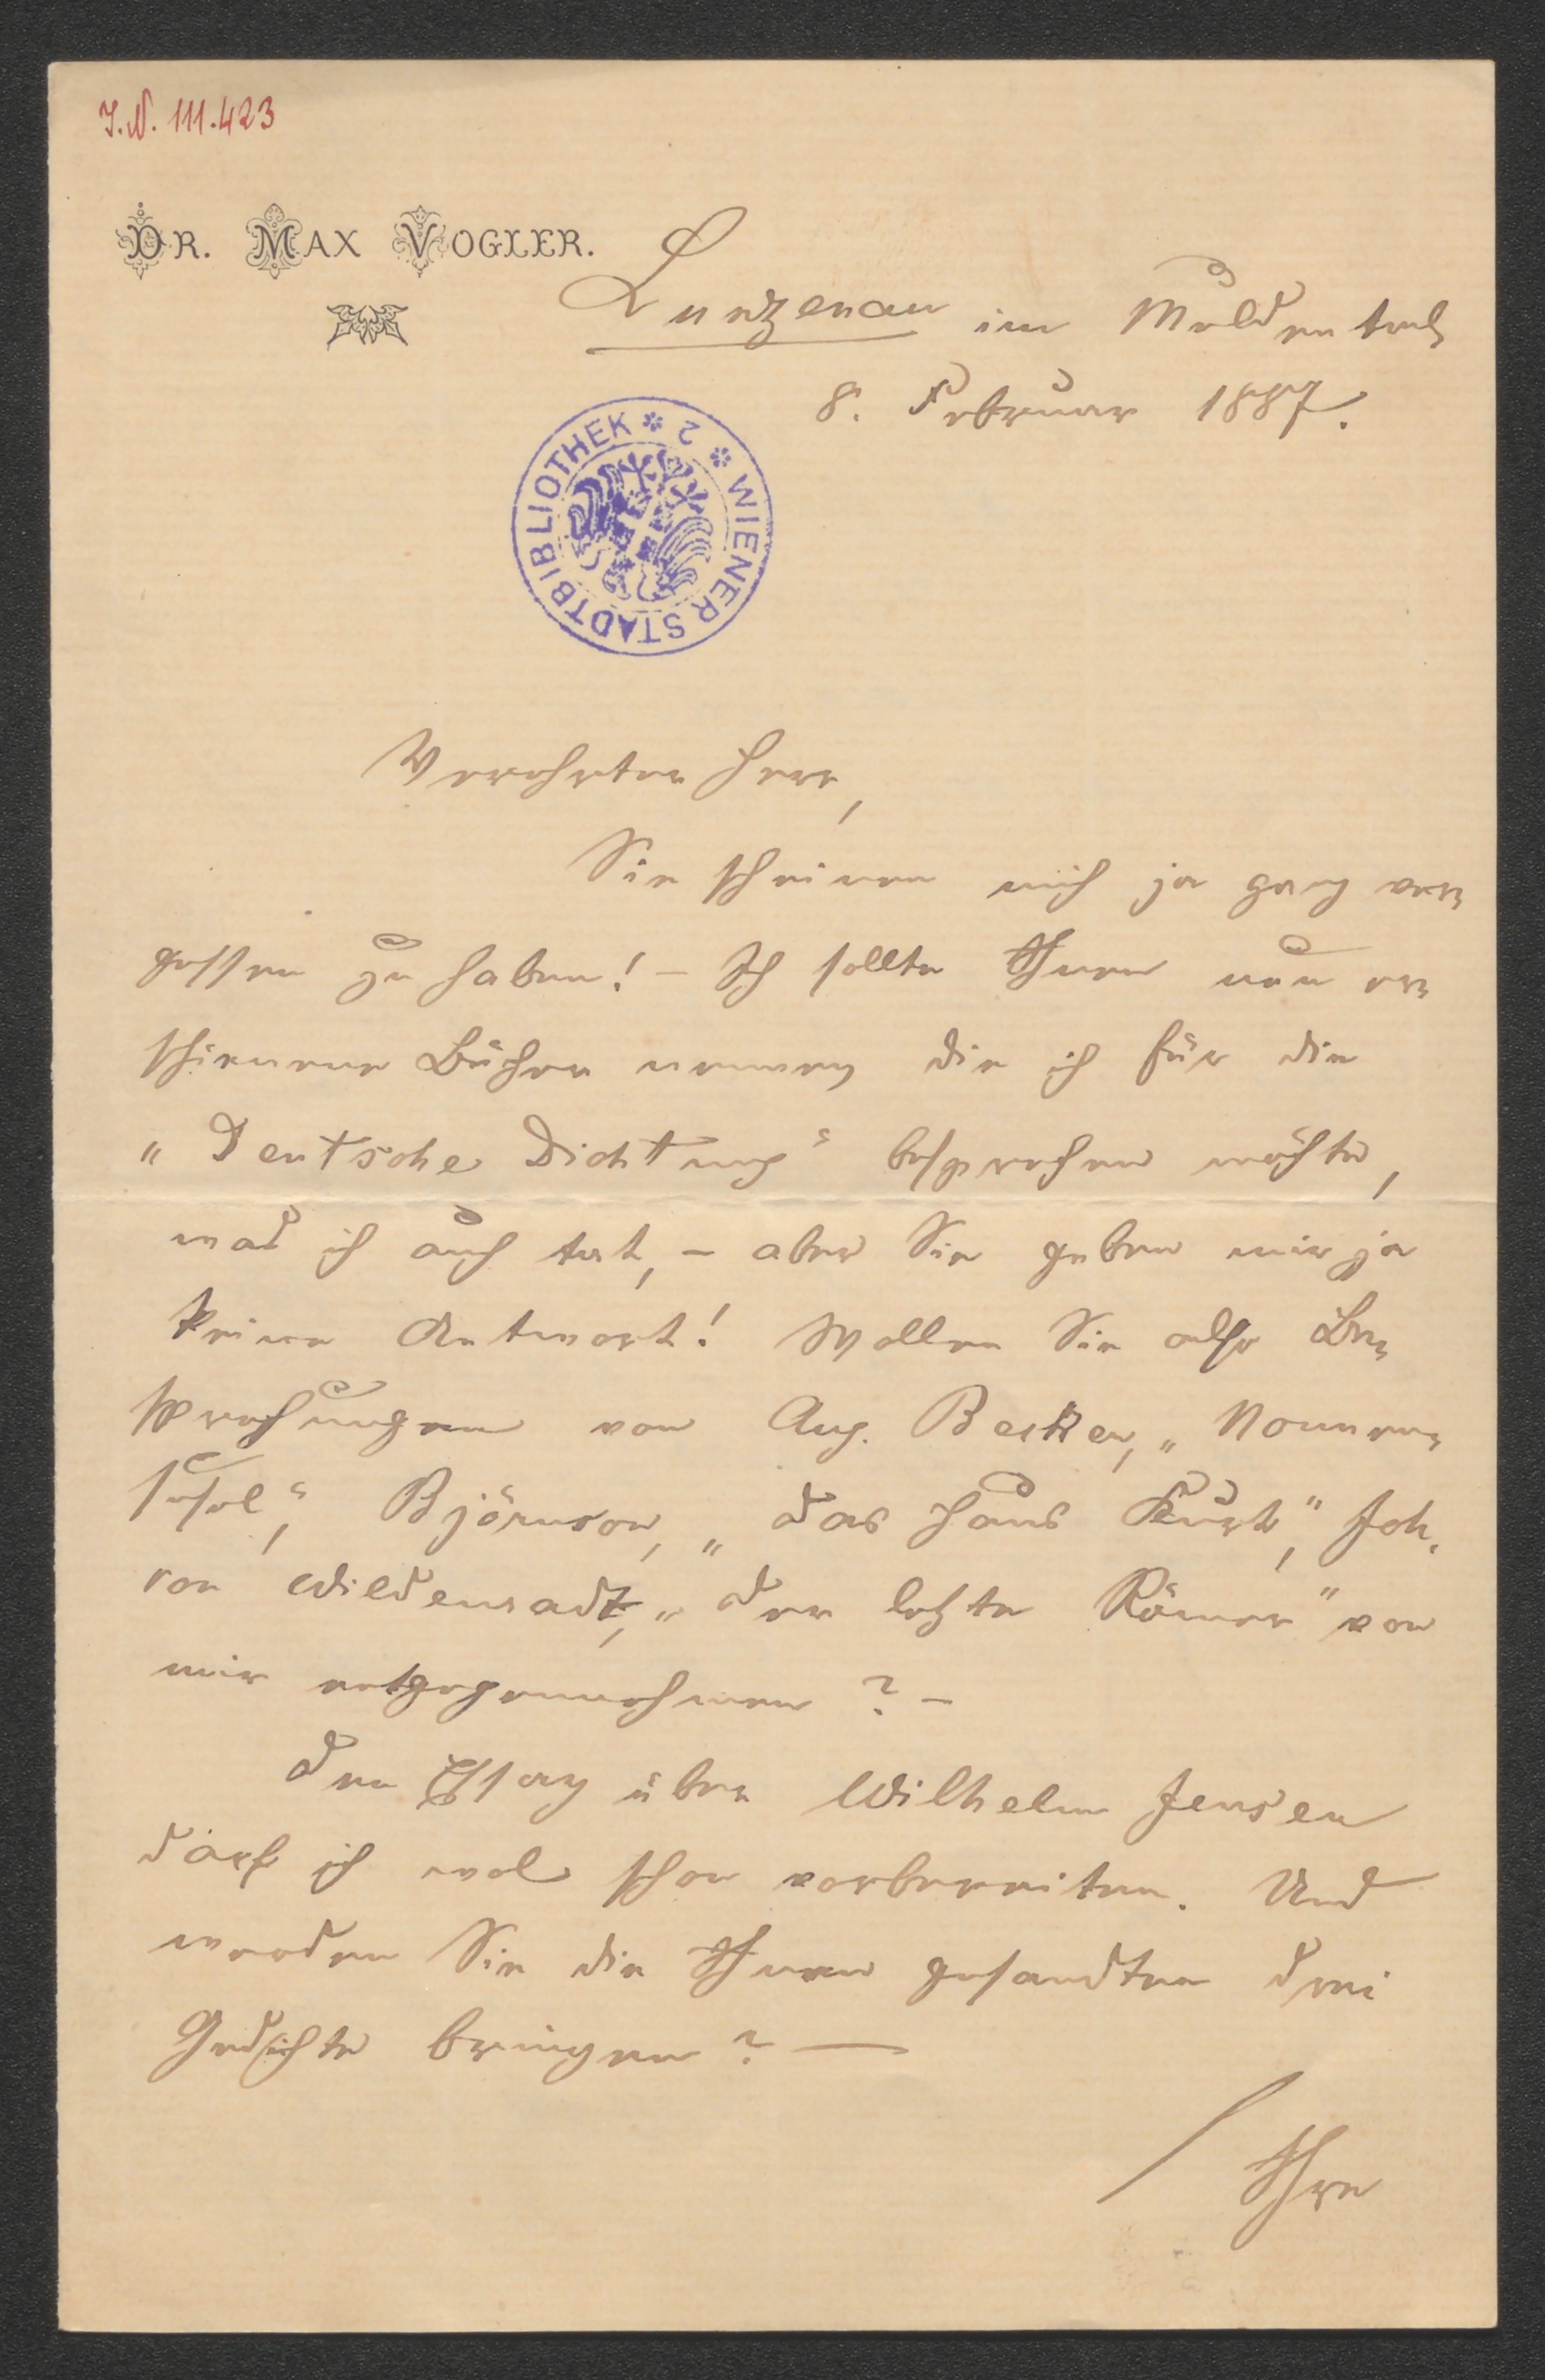 I.N. 111.423
DR. MAX VOGLER.
Lunzenau im Muldental,
8. Februar 1887.
WIENER STADTBIBLIOTHEK * 2 *
Verehrter Herr,
Sie scheinen mich ja ganz ver-
gessen zu haben! – Ich sollte Ihnen neu er-
schienene Bücher nennen, die ich für die
„Deutsche Dichtung“ besprechen möchte,
was ich auch tat, – aber Sie geben mir ja
keine Antwort! Wollen Sie also Be-
sprechungen von Aug. Becker, „Nonnen-
susel“, Björnson, „Das Haus Kurt“, Joh.
von Wildenradt, „Der letzte Römer“ von
mir entgegennehmen? –
Den Essay über Wilhelm Jensen
darf ich wol schon vorbereiten. Und
werden Sie die Ihnen gesandten drei
Gedichte bringen? —
Ihr